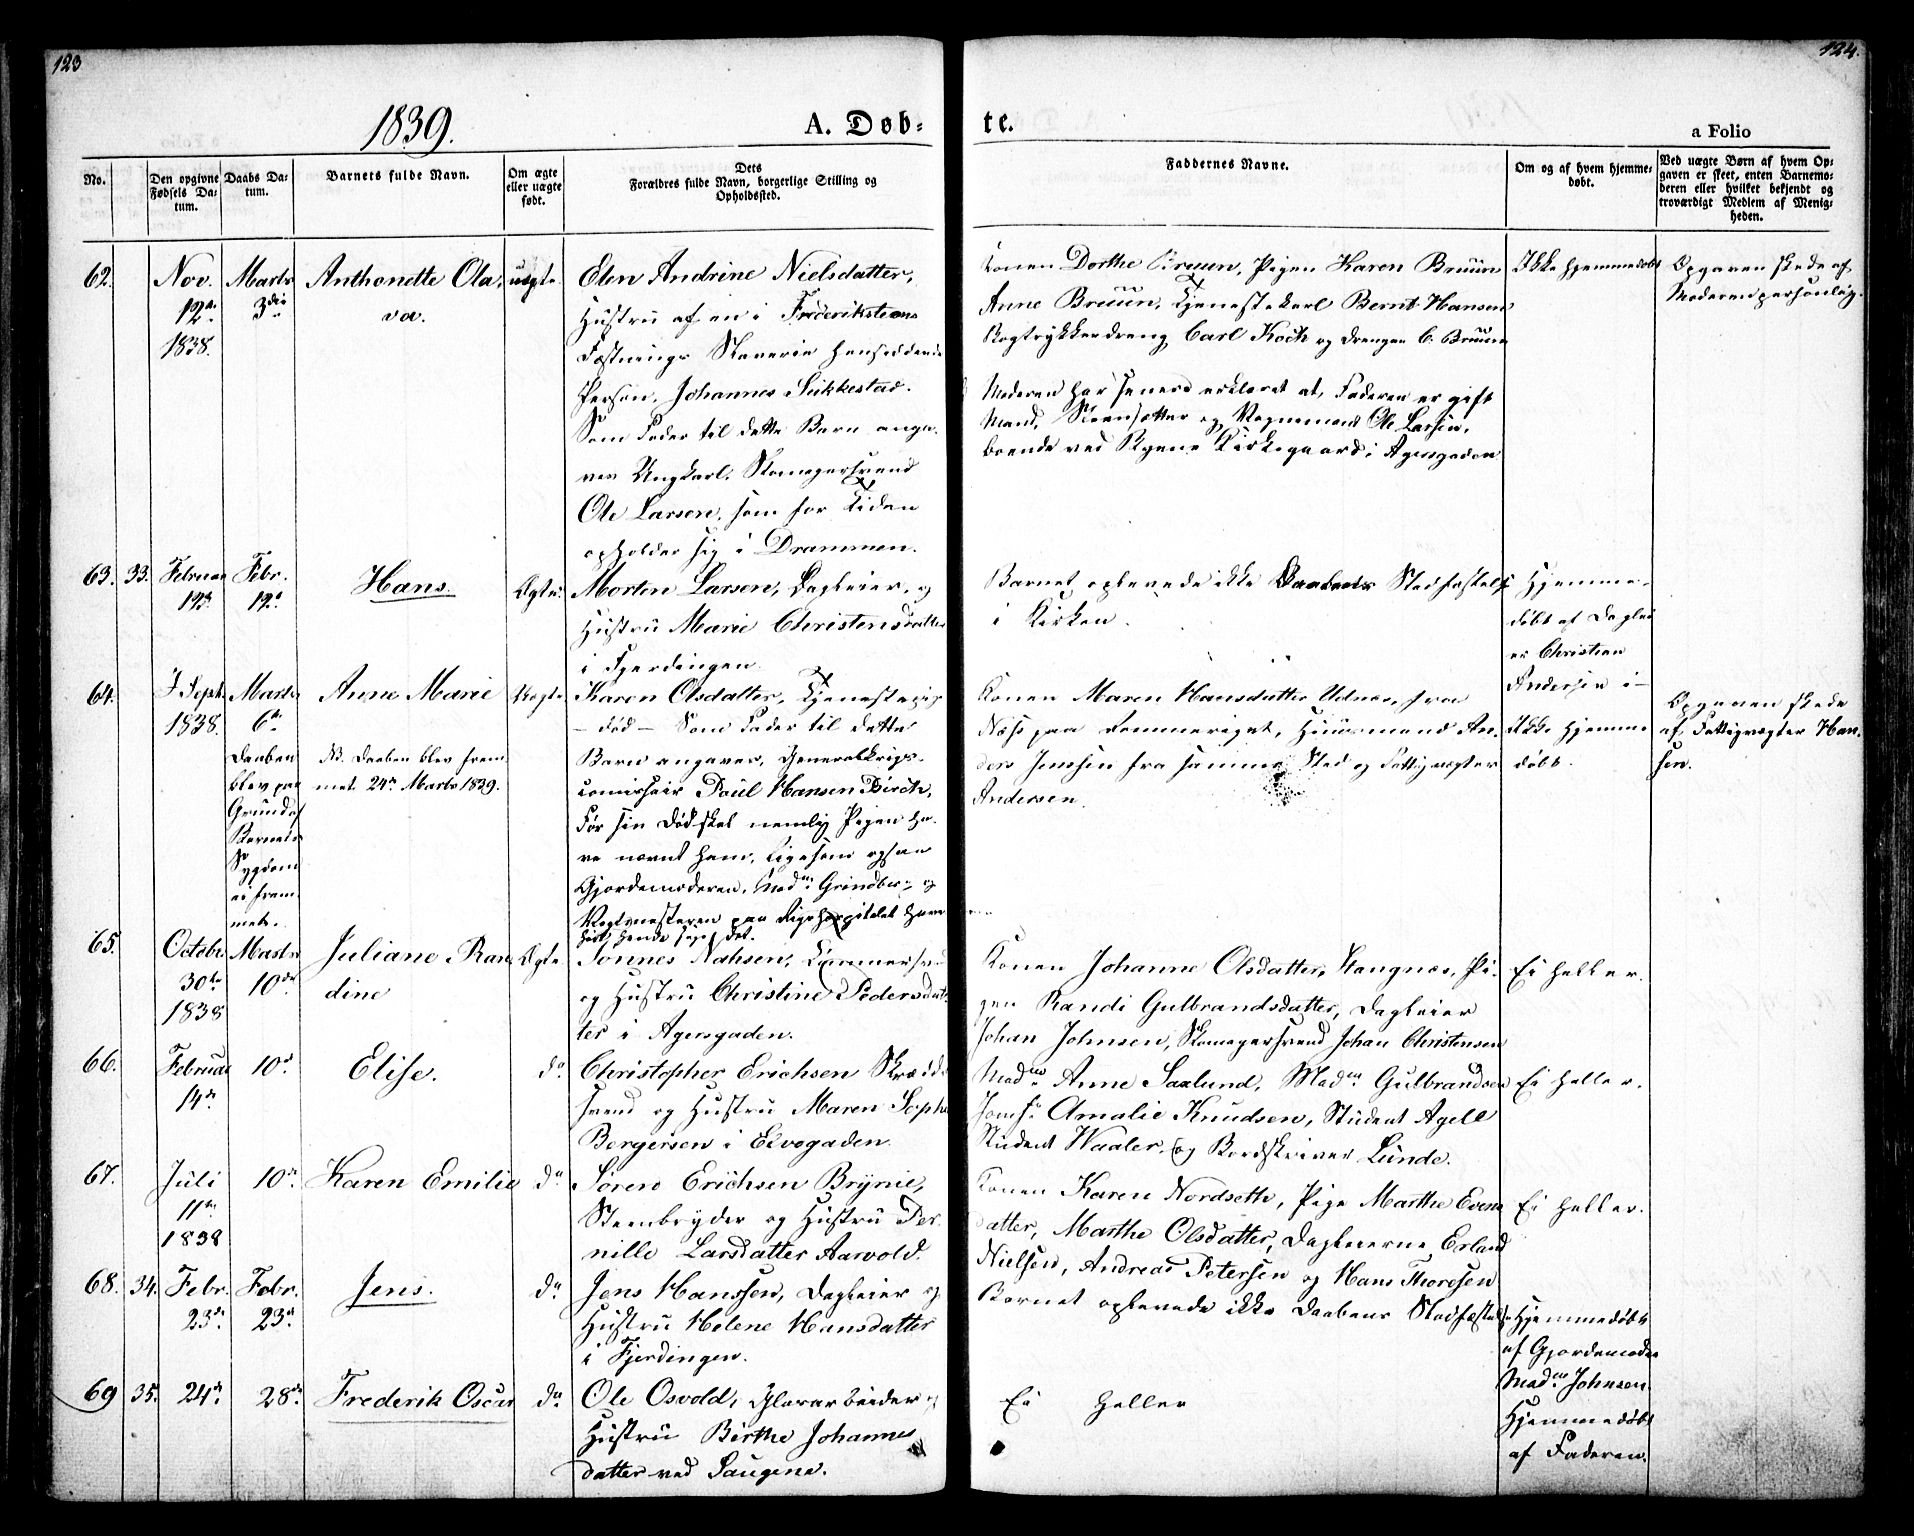 123
124.
1839.
A. Døb-
te.
a Folio
No.
Den opgivne Fødsels Da-
tum.
Daabs Da-
tum.
Barnets fulde Navn.
Om ægte
eller uægte
født.
Dets
Forældres fulde Navn, borgerlige Stilling og
Opholdssted.
Faddernes Navne.
Om og af hvem hjemme-
døbt.
Ved uægte Børn af hvem Op-
gaven er skeet, enten Barnemo-
deren eller hvilket bekjendt og
troværdigt Medlem af Menig-
heden.
62.
Nov.
12te
1838.
Marts
3die
Anthonette Ola-
va.
uægte.
Elen Andrine Nielsdatter,
Hustru af en i Frederiksteens
Fæstnings Slaverie hensiddende
Person, Johannes Sukkestad.
Som Fader til dette Barn anga-
ves Ungkarl, Skomagersvend
Ole Larsen, som for Tiden
opholder sig i Drammen.
Konen Dorthe Bruun, Pigen Karen Bruun
Anne Bruun, Tjenestekarl Bernt Hansen
Bogtrykkerdreng Carl Koch og Drengen C. Bruun
Moderen har senere erklæret at Faderen er gift
Mand, Steensætter og Vognmand Ole Larsen,
boende ved Byens Kirkegaard i Agersgaden
Ikke hjemmedøbt
Opgaven skede af
Moderen personlig.
63.
33.
Februar
12te
Febr.
12te
Hans.
Ægte.
Morten Larsen, Dagleier, og
Hustru Marie Christensdatter
i Fjerdingen.
Barnet oplevede ikke Daabens Stadfæstelse
i Kirken.
Hjemme-
døbt af Daglei
er Christian
Andersen i
64.
7 Septb.
1838.
Marts
6te
Daaben
blev paa
Grund af
Barnets
Sygdom
ei frem-
met.
Anne Marie
NB. Daaben blev frem
met 24de Marts 1839.
Uægte
Karen Olsdatter, Tjenestepige
- død - Som Fader til dette
Barn angaves, Generalkrigs-
comissair Paul Hansen Birch,
Før sin Død skal nemlig Pigen ha-
ve nævnt ham, ligesom ogsaa
Gjordemoderen, Madme Grindber- og
Vogtmesteren paa Rigshospitalet have
hørt hende sige det.
Konen Maren Hansdatter Udnæs, fra
Næss paa Rommeriget, Huusmand An-
ders Jensen fra samme Sted og Fattigvogter
Andersen.
Ikke hjemme
døbt.
Opgaven skede
af Fattigvogter Han-
sen.
65.
October
30te
1838
Marts
10de
Juliane Ran-
dine
Ægte
Tønnes Nahsen, Tømmersvend
og Hustru Christine Pedersdat-
ter i Agersgaden.
Konen Johanne Olsdatter, Haugnæs, Pi-
gen Randi Gulbrandsdatter, Dagleier
Johan Johnsen, Skomagersvend Johan Christensen
Ei heller.
66.
Februar
14de
10de
Elise.
do
Christopher Erichsen Skrædd-
svend og Hustru Maren Sophie
Bergersen i Elvegaden.
Madme Anne Saxlund, Madme Gulbrandsen
Jomfr. Amalie Knudsen, Student Agell
Student Waaler, og Bordskriver Lunde.
Ei heller.
67.
Juli
11te
1838
10de
Karen Emilie
do
Søren Erichsen Brynie,
Steenbryder og Hustru Per-
nille Larsdatter Aarvold.
Konen Karen Nordseth, Pige Marthe Evens
datter, Marthe Olsdatter, Dagleierne Erland
Nielsen, Andreas Petersen og Hans Thoresen
Ei heller.
68.
34.
Febr.
23de
Febr.
23de
Jens.
do
Jens Hanssen, Dagleier og
Hustru Helene Hansdatter
i Fjerdingen.
Barnet oplevede ikke Daabens Stadfæstelse
Hjemmedøbt
af Gjordemoder
Madme Johnsen.
69
35.
24de
28de
Frederik Oscar
do
Ole Osvold, Glasarbeider og
Hustru Birthe Johannes
datter ved Saugene.
Ei heller
Hjemmedøbt
af Faderen.